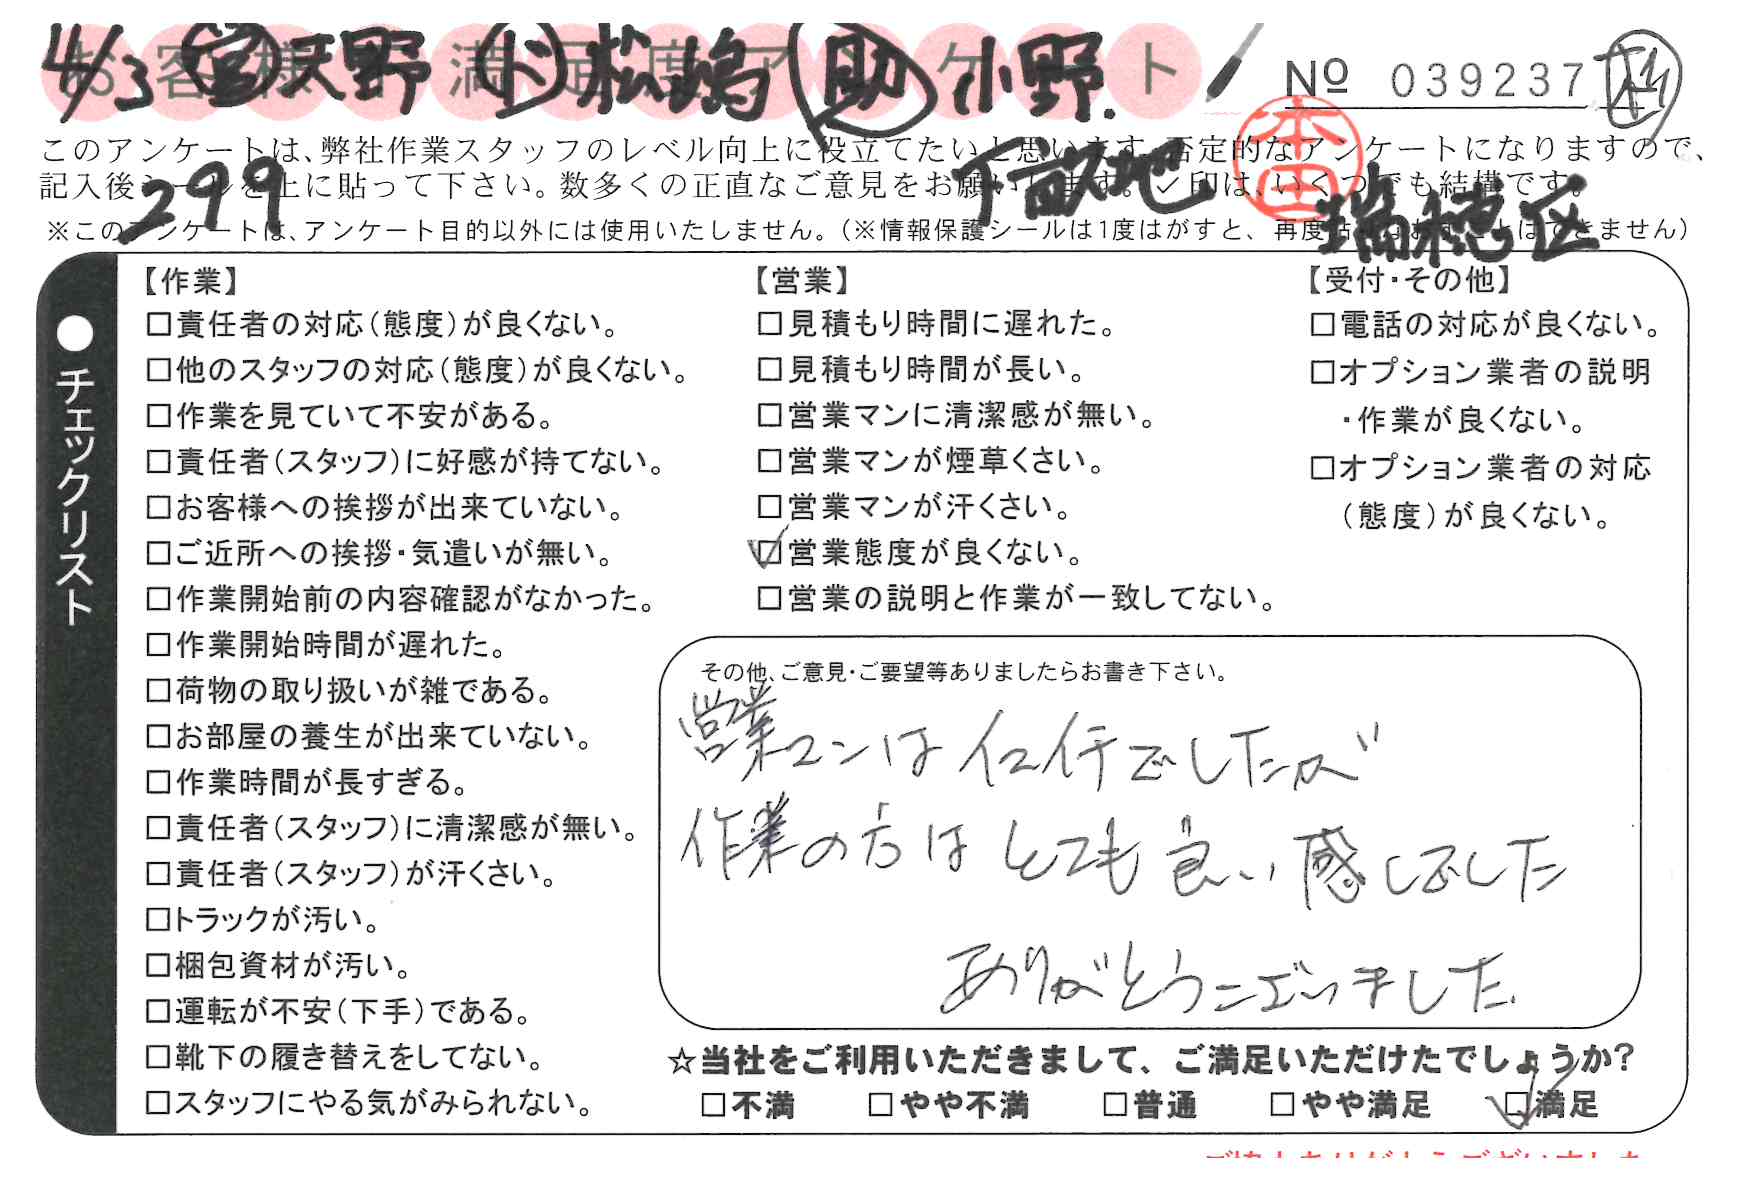 お客様満足度アンケート
4/3 営 天野 ド 松嶋 助 小野.
No 039237
本田
このアンケートは、弊社作業スタッフのレベル向上に役立てたいと思います。否定的なアンケートになりますので、
記入後シールを上に貼って下さい。数多くの正直なご意見をお願いします。✓印は、いくつでも結構です。
299 瑞穂区
※このアンケートは、アンケート目的以外には使用いたしません。(※情報保護シールは1度はがすと、再度貼りなおすことはできません)
●チェックリスト
【作業】
□責任者の対応(態度)が良くない。
□他のスタッフの対応(態度)が良くない。
□作業を見ていて不安がある。
□責任者(スタッフ)に好感が持てない。
□お客様への挨拶が出来ていない。
□ご近所への挨拶・気遣いが無い。
□作業開始前の内容確認がなかった。
□作業開始時間が遅れた。
□荷物の取り扱いが雑である。
□お部屋の養生が出来ていない。
□作業時間が長すぎる。
□責任者(スタッフ)に清潔感が無い。
□責任者(スタッフ)が汗くさい。
□トラックが汚い。
□梱包資材が汚い。
□運転が不安(下手)である。
□靴下の履き替えをしてない。
□スタッフにやる気がみられない。
【営業】
□見積もり時間に遅れた。
□見積もり時間が長い。
□営業マンに清潔感が無い。
□営業マンが煙草くさい。
□営業マンが汗くさい。
☑営業態度が良くない。
□営業の説明と作業が一致してない。
【受付・その他】
□電話の対応が良くない。
□オプション業者の説明
・作業が良くない。
□オプション業者の対応
(態度)が良くない。
その他、ご意見・ご要望等ありましたらお書き下さい。
営業マンはイマイチでしたが
作業の方はとても良い感じでした
ありがとうございました
☆当社をご利用いただきまして、ご満足いただけたでしょうか?
□不満 □やや不満 □普通 □やや満足 ☑満足
ご協力ありがとうございました